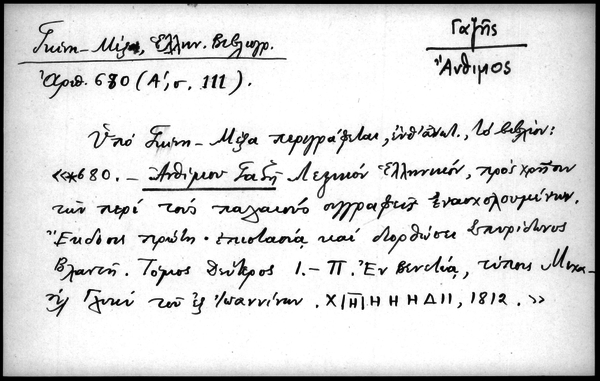 Γκίνη – Μέξα, Ἑλλην. Βιβλιογρ.
Ἀριθ. 680 (Α', σ. 111).
Γαζῆς
Ἄνθιμος
Ὑπό Γκίνη – Μέξα περιγράφεται, ἐνθ' ἀνωτ., τό βιβλίον:
«*680. – Ἀνθίμου Γαζῆ Λεξικόν Ἑλληνικόν, πρός χρῆσιν
τῶν περί τούς παλαιούς συγγραφεῖς ἐνασχολουμένων.
Ἔκδοσις πρώτη · ἐπιστασίᾳ καί διορθώσει Σπυρίδωνος
Βλαντῆ. Τόμος δεύτερος Ι. – Π. Ἐν Βενετίᾳ, τύποις Μιχα-
ήλ Γλυκύ τοῦ ἐξ Ἰωαννίνων. Χ|Η|ΗΗΗΔΙΙ, 1812. »